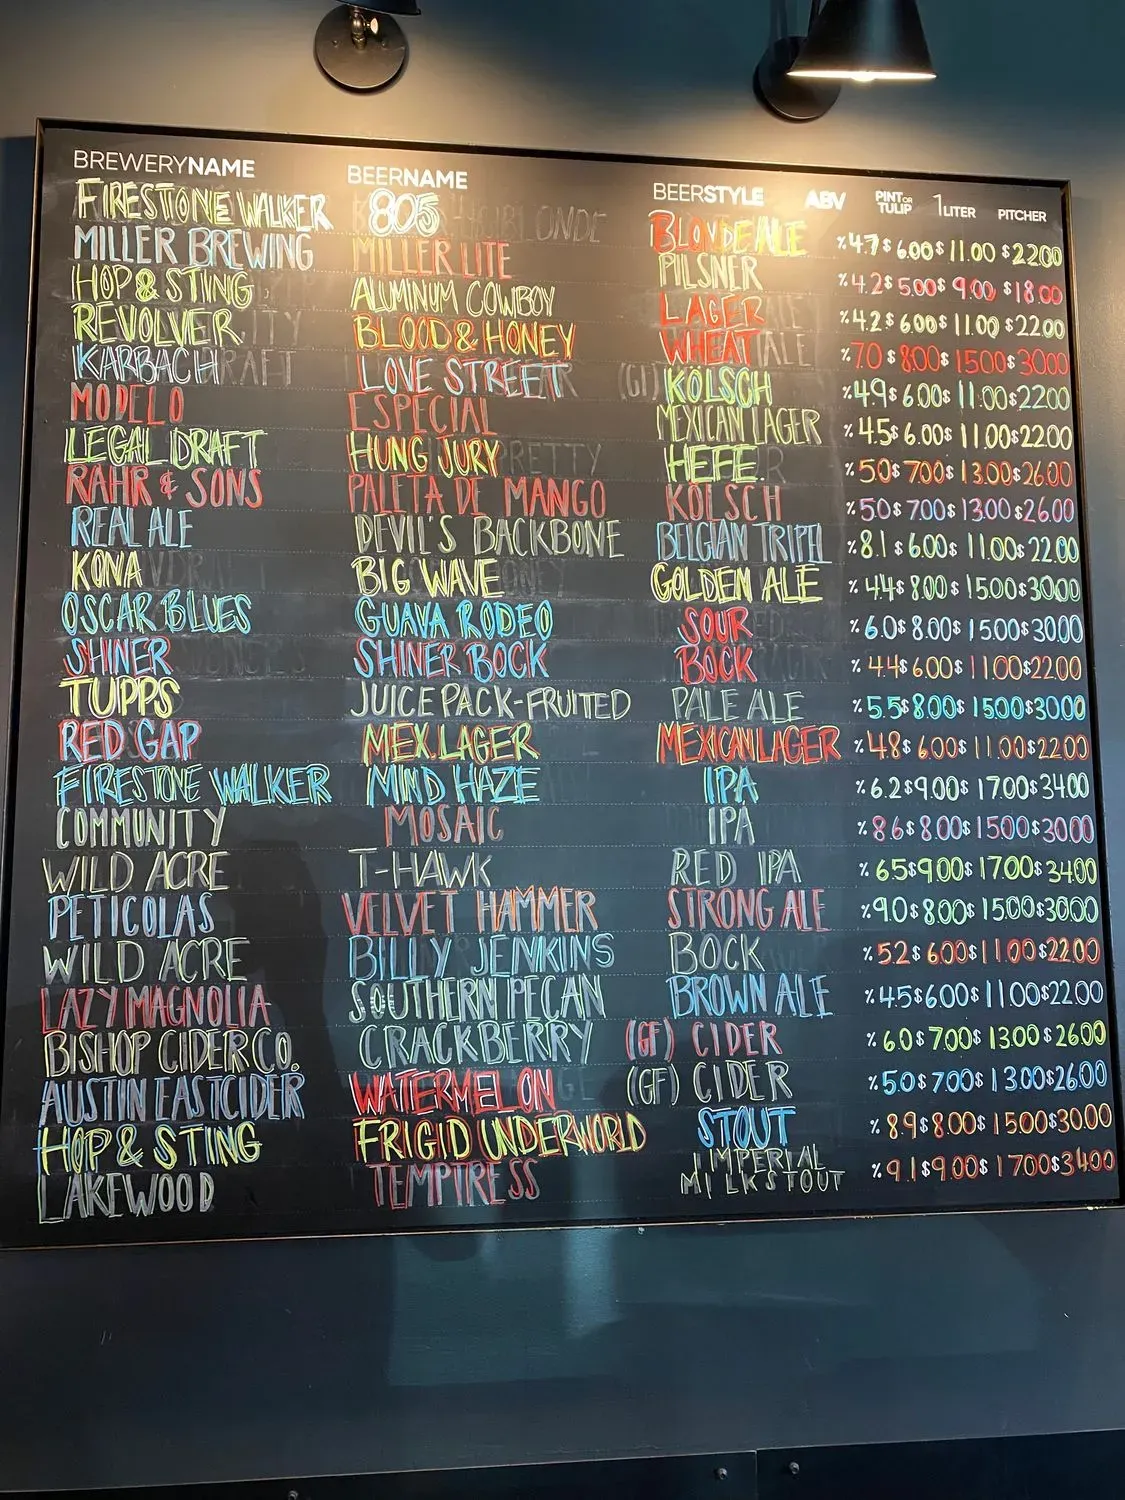 BREWERYNAME BEERNAME BEERSTYLE ABV PINT OR TULIP 1LITER PITCHER
FIRESTONE WALKER 805 BLONDE ALE %4.7 $6.00 $11.00 $22.00
MILLER BREWING MILLER LITE PILSNER %4.2 $5.00 $9.00 $18.00
HOP & STING ALUMINUM COWBOY LAGER %4.2 $6.00 $11.00 $22.00
REVOLVER BLOOD & HONEY WHEAT %7.0 $8.00 $15.00 $30.00
KARBACH LOVE STREET KÖLSCH %4.9 $6.00 $11.00 $22.00
MODELO ESPECIAL MEXICAN LAGER %4.5 $6.00 $11.00 $22.00
LEGAL DRAFT HUNG JURY HEFE. %5.0 $7.00 $13.00 $26.00
RAHR & SONS PALETA DE MANGO KÖLSCH %5.0 $7.00 $13.00 $26.00
REAL ALE DEVIL'S BACKBONE BELGIAN TRIPEL %8.1 $6.00 $11.00 $22.00
KONA BIG WAVE GOLDEN ALE %4.4 $8.00 $15.00 $30.00
OSCAR BLUES GUAVA RODEO SOUR %6.0 $8.00 $15.00 $30.00
SHINER SHINER BOCK BOCK %4.4 $6.00 $11.00 $22.00
TUPPS JUICE PACK-FRUITED PALE ALE %5.5 $8.00 $15.00 $30.00
RED GAP MEX.LAGER MEXICAN LAGER %4.8 $6.00 $11.00 $22.00
FIRESTONE WALKER MIND HAZE IPA %6.2 $9.00 $17.00 $34.00
COMMUNITY MOSAIC IPA %8.6 $8.00 $15.00 $30.00
WILD ACRE T-HAWK RED IPA %6.5 $9.00 $17.00 $34.00
PETICOLAS VELVET HAMMER STRONG ALE %9.0 $8.00 $15.00 $30.00
WILD ACRE BILLY JENKINS BOCK %5.2 $6.00 $11.00 $22.00
LAZY MAGNOLIA SOUTHERN PECAN BROWN ALE %4.5 $6.00 $11.00 $22.00
BISHOP CIDER CO. CRACKBERRY (GF) CIDER %6.0 $7.00 $13.00 $26.00
AUSTIN EASTCIDER WATERMELON (GF) CIDER %5.0 $7.00 $13.00 $26.00
HOP & STING FRIGID UNDERWORLD STOUT %8.9 $8.00 $15.00 $30.00
LAKEWOOD TEMPTRESS IMPERIAL MILK STOUT %9.1 $9.00 $17.00 $34.00